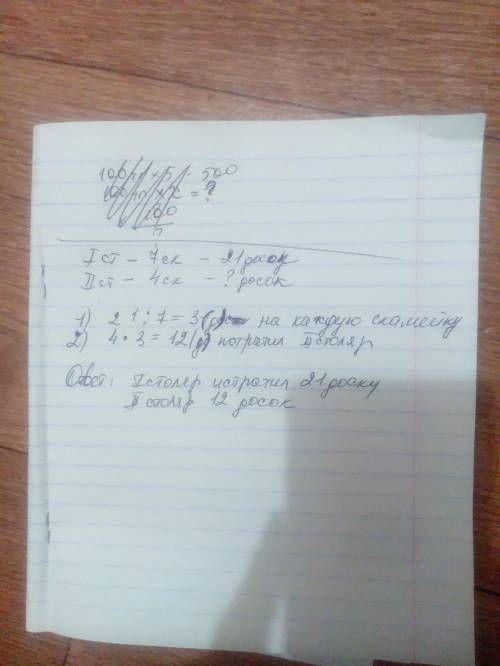 100 × 5 = 500
= ?
I ст – 7 ск – 21 досок
II ст – 4 ск – ? досок
1) 21 : 7 = 3 (д) на каждую скамейку
2) 4 · 3 = 12 (д) потратил II столяр
Ответ: I столяр истратил 21 доску
II столяр 12 досок